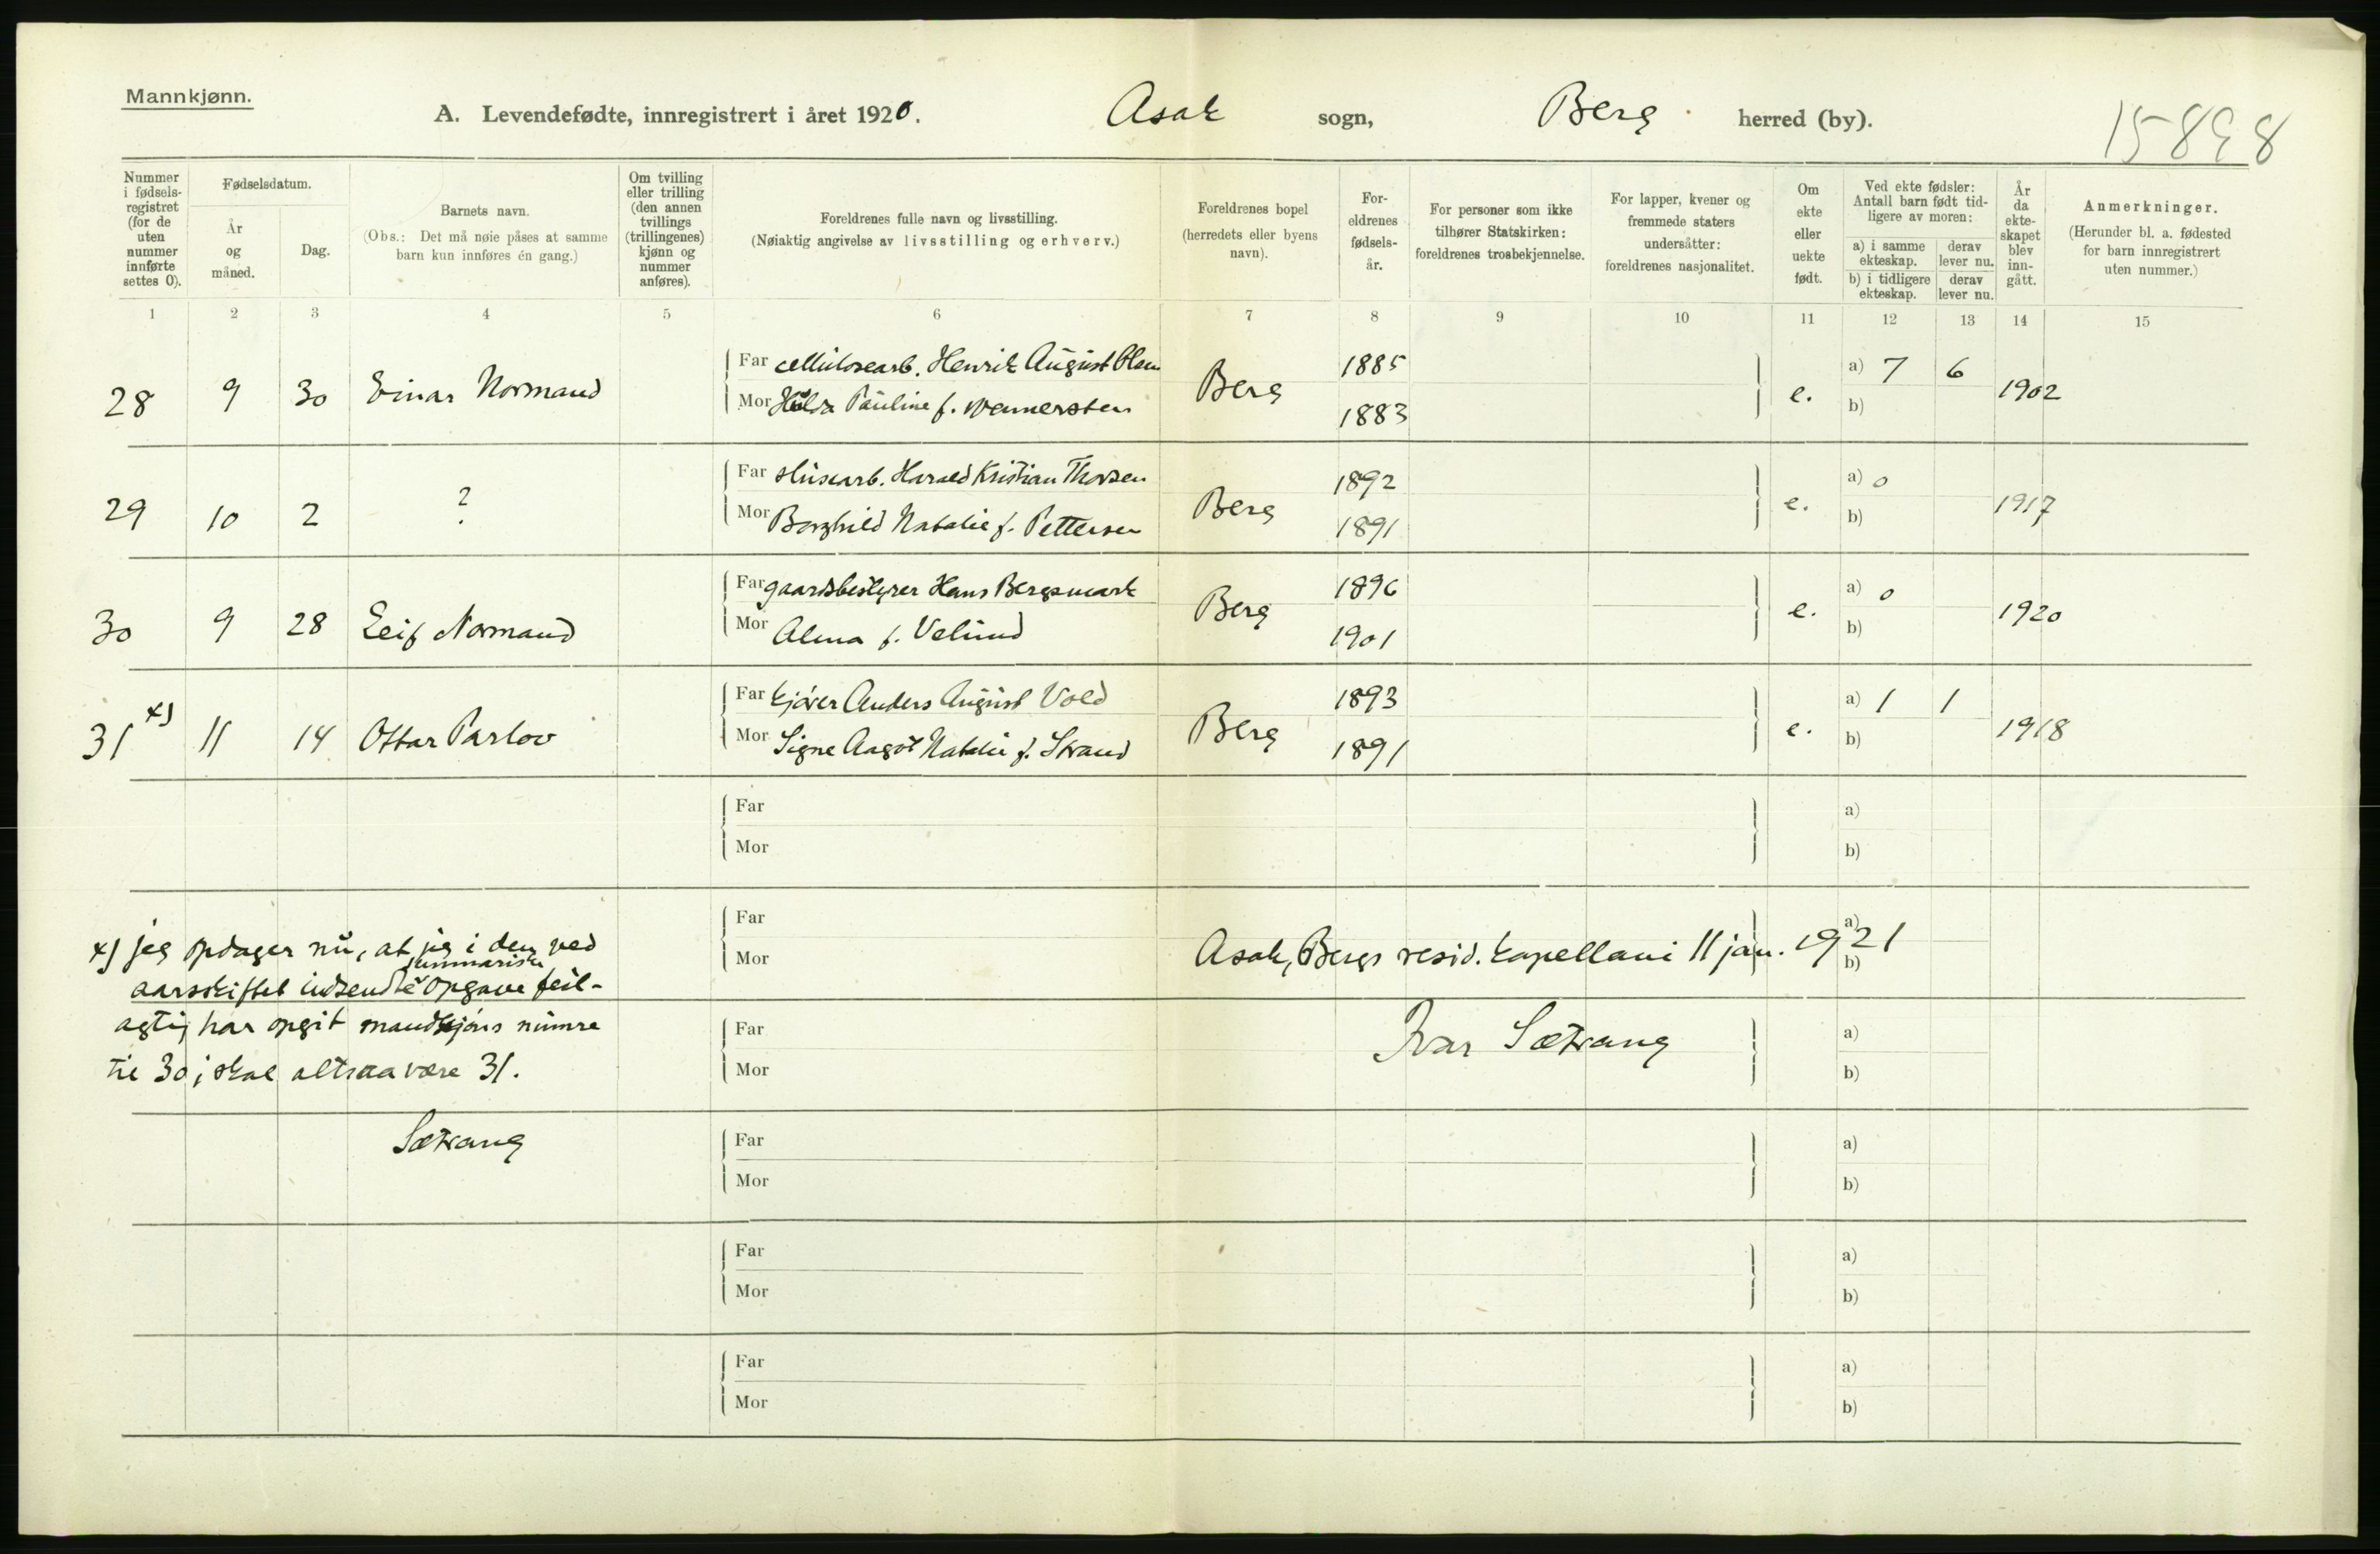 Mannkjønn.
A. Levendefødte, innregistrert i året 1920. Asak sogn, Berg herred (by).
15898
Nummer i fødsels-registret (for de uten nummer innførte settes 0).
Fødselsdatum.
År og måned.
Dag.
Barnets navn.
(Obs.: Det må nøie påses at samme barn kun innføres én gang.)
Om tvilling eller trilling (den annen tvillings (trillingenes) kjønn og nummer anføres).
Foreldrenes fulle navn og livsstilling.
(Nøiaktig angivelse av livsstilling og erhverv.)
Foreldrenes bopel (herredets eller byens navn).
For-eldrenes fødsels-år.
For personer som ikke tilhører Statskirken: foreldrenes trosbekjennelse.
For lapper, kvener og fremmede staters undersåtter: foreldrenes nasjonalitet.
Om ekte eller uekte født.
Ved ekte fødsler: Antall barn født tid-ligere av moren:
a) i samme ekteskap. derav lever nu.
b) i tidligere ekteskap. derav lever nu.
År da ekte-skapet blev inn-gått.
Anmerkninger.
(Herunder bl. a. fødested for barn innregistrert uten nummer.)
1 2 3 4 5 6 7 8 9 10 11 12 13 14 15
28 9 30 Einar Normand Far cellulosearb. Henrik August Olsen Berg 1885 e. a) 7 6 1902
Mor Hilda Pauline f. Wennersten 1883 b)
29 10 2 ? Far Harald Kristian Thorsen Berg 1892 e. a) 0 1917
Mor Borghild Natalie f. Pettersen 1891 b)
30 9 28 Leif Normand Far gaardsbestyrer Hans Bergsmark Berg 1896 e. a) 0 1920
Mor Alma f. Velund 1901 b)
31 x) 11 14 Ottar Parlov Far kjører Anders August Vold Berg 1893 e. a) 1 1 1918
Mor Signe Aagot Natalie f. Strand 1891 b)
Far a)
Mor b)
Far a)
Mor b)
x) jeg opdager nu, at jeg i den ved
summariske
aarsskiftet indsendte opgave feil-
agtig har opgit mandkjøns numre
til 30; skal altsaa være 31.
Sætrang
Asak, Bergs resid. kapellani 11 jan. 1921
Ivar Sætrang
Far a)
Mor b)
Far a)
Mor b)
Far a)
Mor b)
Far a)
Mor b)